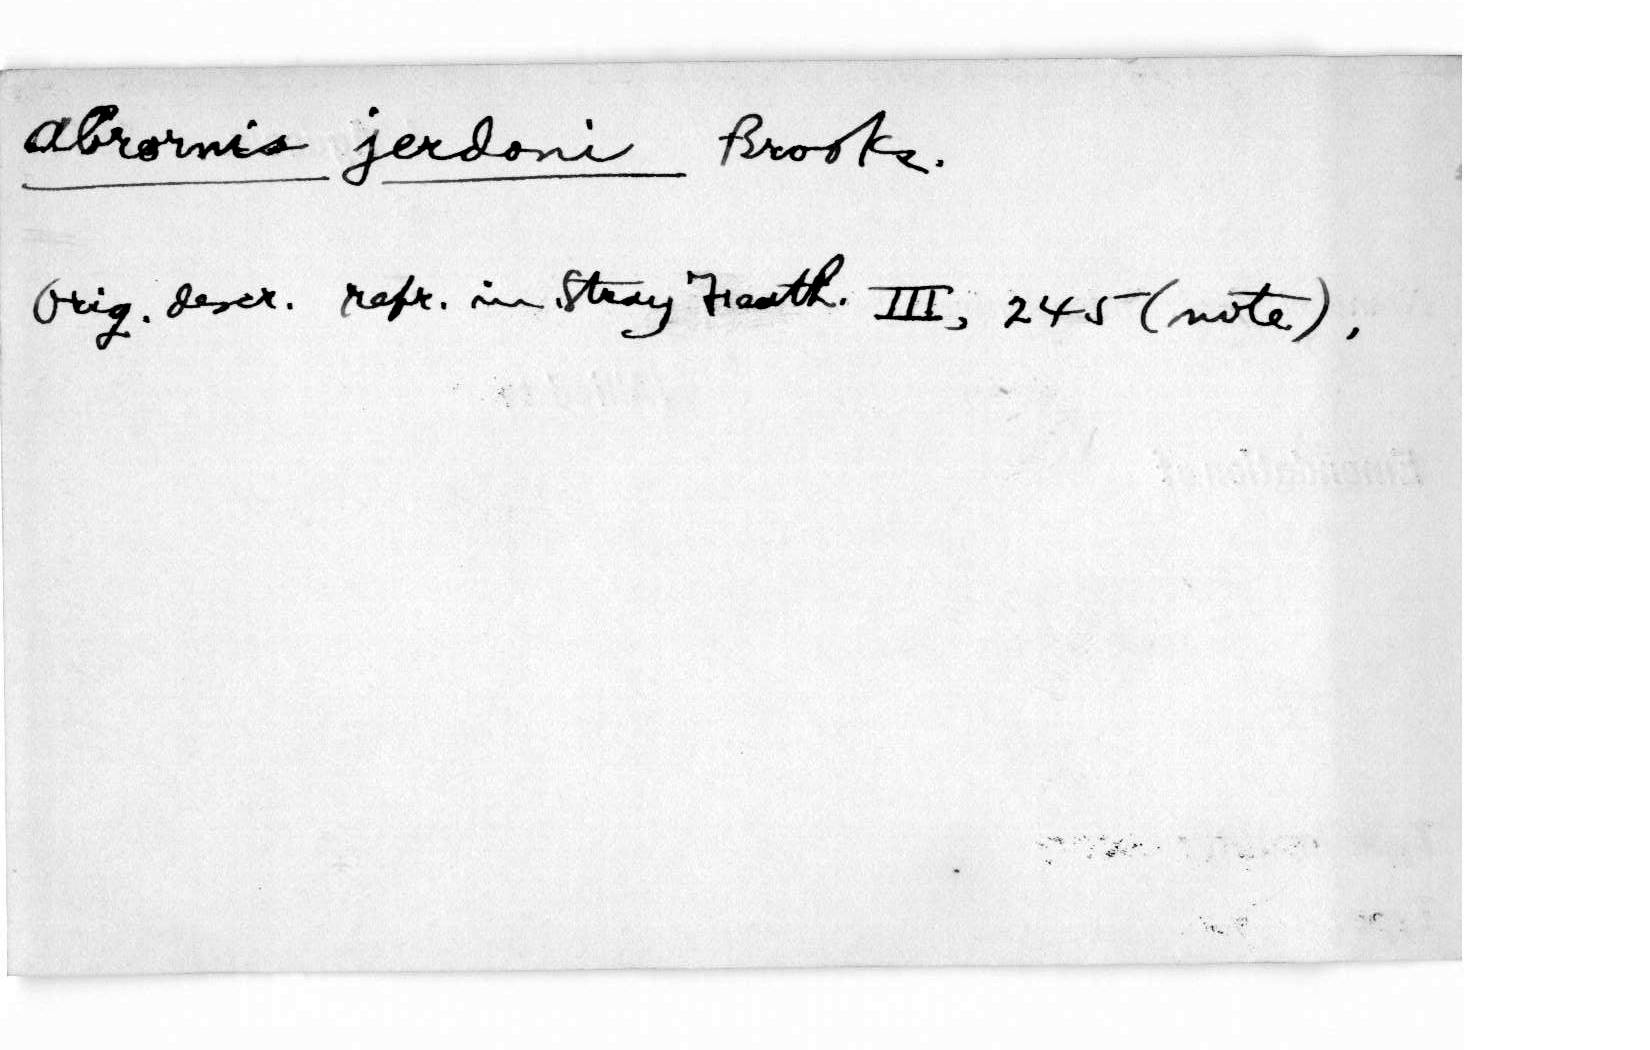 Abrornis jerdoni Brooks.
Orig. descr. repr. in Stray Feath. III, 245 (note).